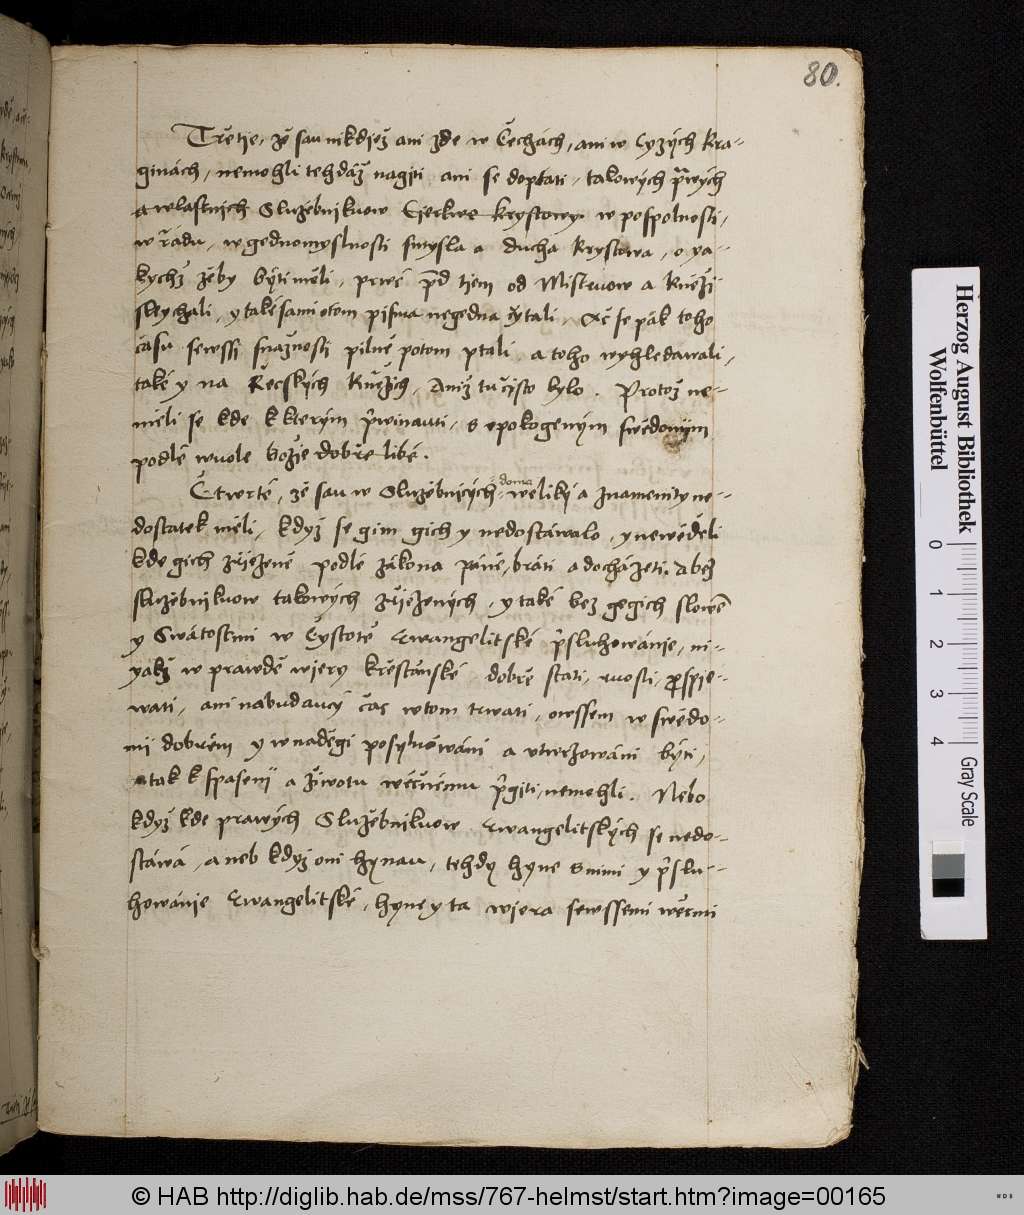 80.
Třetie, že sau nikdiež ani zde w Čechách, ani w Cyzých kra-
ginách, nemohli tehdáž nagiti ani se doptati, takowých prwých
a wlastnich Služebnikuow Cierkwe krystowy. w pospolnosti,
w řádu, w gednomyslnosti smysla a ducha krystowa, o ya-
kychž žeby býti měli, prwé přd tiem od Mistruow a kněži
slychali, y také sami o tom pisma negedna čytali, Ač se pak toho
času sewssi snažnosti pilně potom ptali a toho wyhledawali,
také y na Řeckých kněžich, Aniž tu čisto bylo. Protož ne-
měli se kde k kterým přiwinauti, s upokogeným swědomijm
podlé wuole božie dobře libé.
Čtwrté, že sau w Služebnicých doma weliký a znamenity ne-
dostatek měli, když se gim gich y nedostáwalo, y newěděli
kde gich zřiezené podlé zákona páně, bráti a docházeti. A bez
služebnikuow takowých zřiezených, y také bez gegich slowē
y Swátostmi w Čystotě Ewangelitské přisluhowánie, ni-
yakž w prawdě wiery křestánské dobře státi, ruosti, prospie-
wati, ani nabudaucý čas w tom trwati, owssem w swědo-
mij dobrém y w naděgi posylnowáni a utwrzowáni býti,
a tak k spasenij a žiwotu wěčnému přigiti, nemohli. Nebo
když kde prawých Služebnikuow Ewangelitských se nedo-
stáwá, aneb když oni hynau, tehdy hyne s nimi y přislu-
howánie Ewangelitské, hyne y ta wiera sewssemi wěrnými
Herzog August Bibliothek
Wolfenbüttel
0 1 2 3 4
Gray Scale
© HAB http://diglib.hab.de/mss/767-helmst/start.htm?image=00165